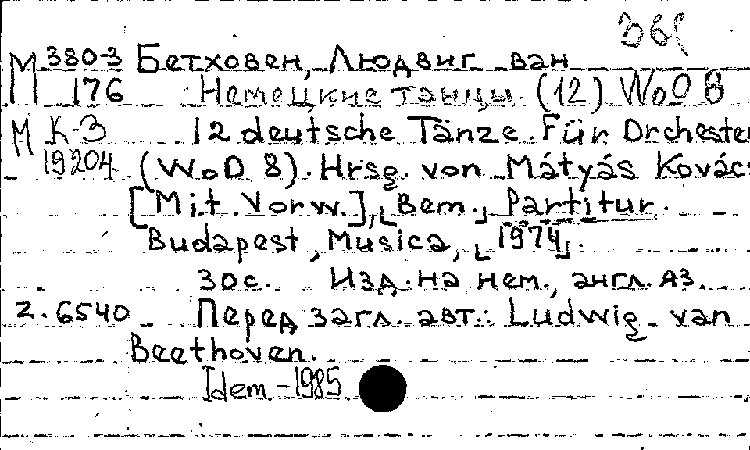 36
М 380-3 Бетховен, Людвиг ван
176 Немецкие танцы (12) WoO 8
М К-3 12 deutsche Tänze. Für Orchester
19204 (WoO 8). Hrsg. von Mátyás Kovács
[Mit. Vorw.], [Bem.] Partitur.
Budapest, Musica, [1974].
30 с. Изд. на нем., англ. яз.
2.6540 Перед загл. авт.: Ludwig van
Beethoven.
Idem - 1985